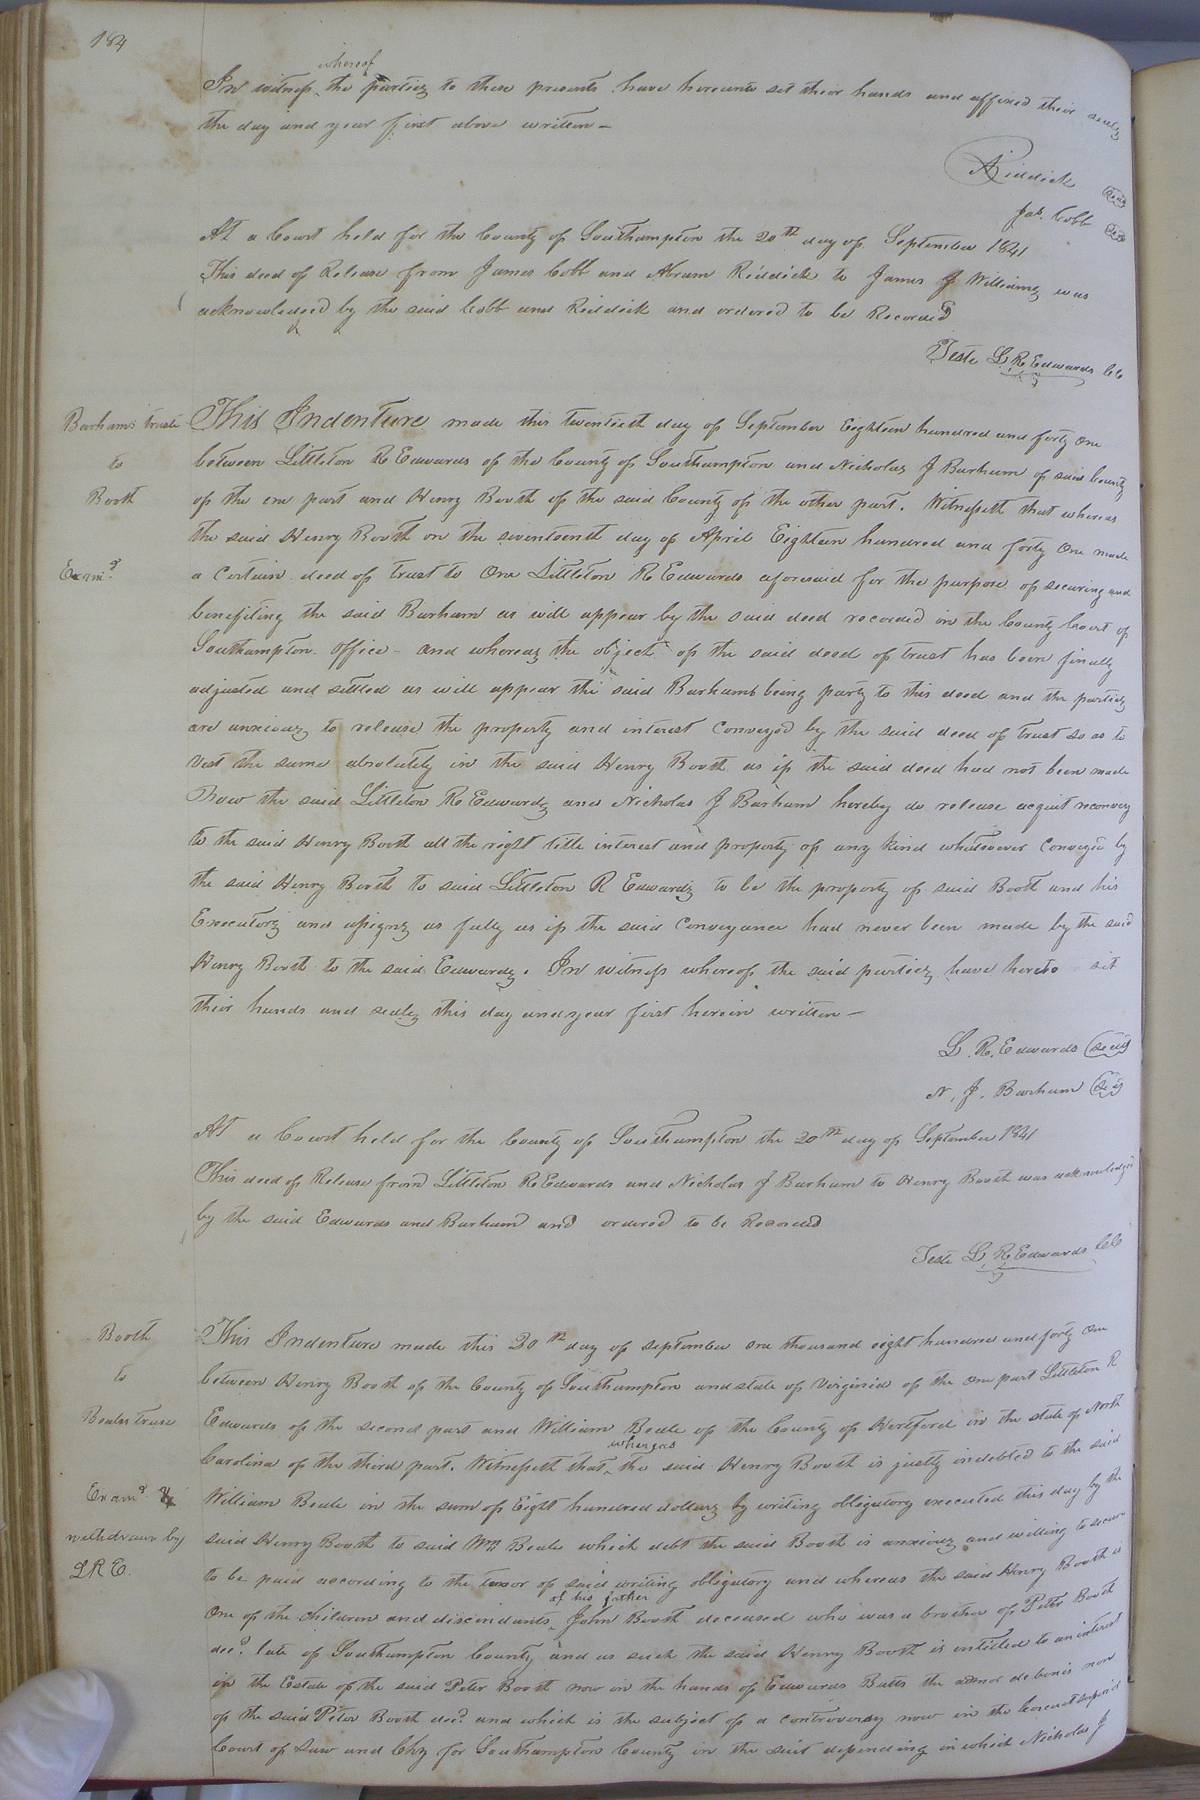 184
In witness whereof the parties to these presents have hereunto set their hands and affixed their seals
the day and year first above written —
A Riddick Seal
Jas. Cobb Seal
At a Court held for the County of Southampton the 20th day of September 1841
This deed of Release from James Cobb and Abram Riddick to James J Williams was
acknowledged by the said Cobb and Riddick and ordered to be Recorded
Teste L R Edwards CC
Barhams truste
to
Booth
Examd
This Indenture made this twentieth day of September Eighteen hundred and forty one
between Littleton R Edwards of the County of Southampton and Nicholas J Barham of said County
of the one part and Henry Booth of the said County of the other part. Witnesseth that whereas
the said Henry Booth on the seventeenth day of April Eighteen hundred and forty one made
a certain deed of trust to One Littleton R Edwards aforesaid for the purpose of securing and
benefiting the said Barham as will appear by the said deed recorded in the County Court of
Southampton office - and whereas the object of the said deed of trust has been finally
adjusted and settled as will appear the said Barham being party to this deed and the parties
are anxious to release the property and interest conveyed by the said deed of trust so as to
vest the same absolutely in the said Henry Booth as if the said deed had not been made
Now the said Littleton R Edwards and Nicholas J Barham hereby do release acquit reconvey
to the said Henry Booth all the right title interest and property of any kind whatsoever conveyed by
the said Henry Booth to said Littleton R Edwards to be the property of said Booth and his
Executors and assigns as fully as if the said conveyance had never been made by the said
Henry Booth to the said Edwards. In witness whereof the said parties have hereto set
their hands and seals this day and year first herein written —
L. R. Edwards Seal
N. J. Barham Seal
At a Court held for the County of Southampton the 20th day of September 1841
This deed of Release from Littleton R Edwards and Nicholas J Barham to Henry Booth was acknowledged
by the said Edwards and Barham and ordered to be Recorded
Teste L R Edwards CC
Booth
to
Beales truse
Examd &
withdrawn by
L R E.
This Indenture made this 20th day of september one thousand eight hundred and forty one
between Henry Booth of the County of Southampton and state of Virginia of the one part Littleton R
Edwards of the second part and William Beale of the County of Hertford in the state of North
Carolina of the third part. Witnesseth that whereas the said Henry Booth is justly indebted to the said
William Beale in the sum of Eight hundred dollars by writing obligatory executed this day by the
said Henry Booth to said Wm Beale which debt the said Booth is anxious and willing to secure
to be paid according to the tenor of said writing obligatory and whereas the said Henry Booth is
one of the children and discendants of his father John Booth deceased who was a brother of Peter Booth
decd. late of Southampton County and as such the said Henry Booth is intitled to an interest
in the Estate of the said Peter Booth now in the hands of Edwards Butts the admor debonis non
of the said Peter Booth decd and which is the subject of a controversy now in the Circuit superior
Court of Law and Chy for Southampton County in the suit depending in which Nicholas J